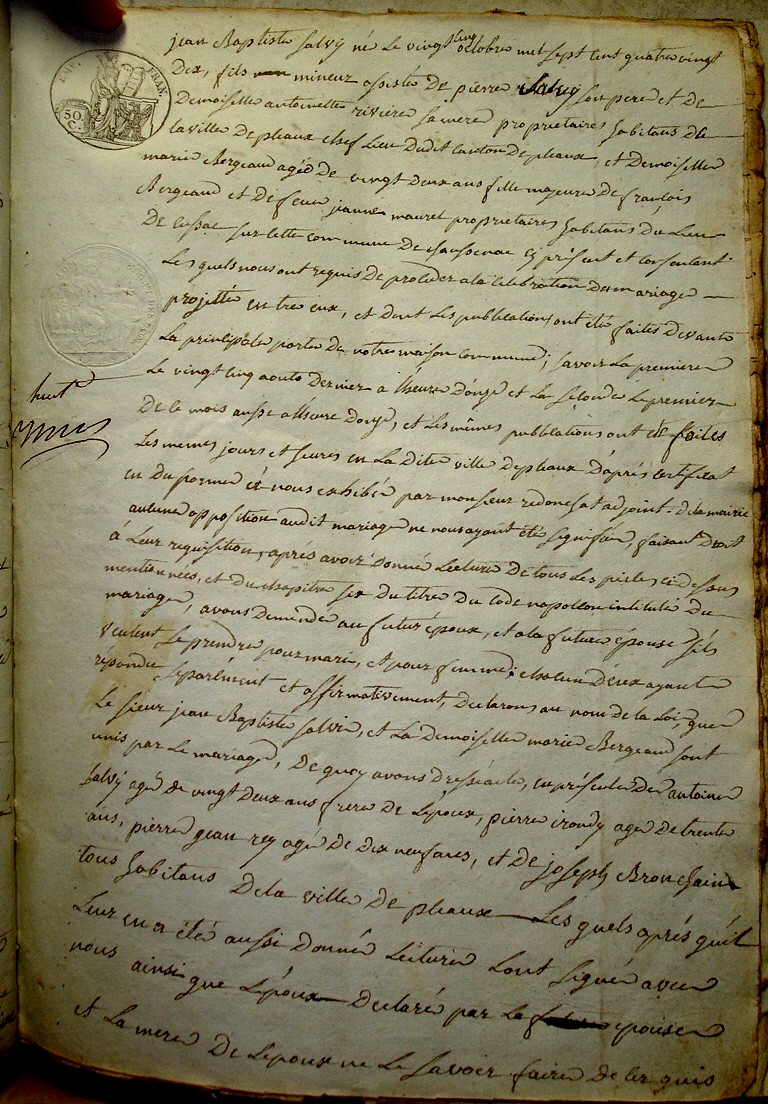 EMP. FRAN.
50 C.
jean Baptiste salvy né le vingt cinq octobre mil sept cent quatre vingt
dix, fils mineur assisté de pierre salvy son pere et de
Demoiselle antoinette riviere sa mere proprietaires habitans de
la ville de pleaux chef lieu dudit canton de pleaux, et Demoiselle
marie Bergeaud agée de vingt deux ans fille majeure de francois
Bergeaud et de feue jeanne mauret proprietaires habitans du lieu
De cussac sur cette commune de chaussenac cy présent et consentant
Lesquels nous ont requis de proceder a la celebration du mariage
projetté entre eux, et dont les publications ont été faites devant
La principale porte de notre maison commune; savoir la premiere
Le vingt cinq aout dernier a l'heure d'onze et la seconde le premier
De ce mois aussi a l'heure d'onze, et les mêmes publications ont été faites
Les memes jours et heures en la dite ville de pleaux d'après certificat
en du forme à nous exhibée par monsieur adjoint de la mairie
aucune opposition audit mariage ne nous ayant été signifiée, faisant droit
à Leur requisition, après avoir donné Lecture de tous les pieces ci dessus
mentionnées, et du chapitre six du titre du code napoleon intitulé du
mariage, avons demandé au futur époux, et a la future épouse s'ils
veulent se prendre pour mari, et pour femme; chacun d'eux ayant
repondu separément et affirmativement, declarons au nom de la loi, que
Le sieur jean Baptiste salvi, et La Demoiselle marie Bergeaud sont
unis par Le mariage, De quoy avons dressé acte, en présence de antoine
salvy agé de vingt deux ans frere de l'époux, pierre irondy agé de trente
ans, pierre jean rey agé de dix neuf ans, et de joseph Bronchain
tous habitans De la ville de pleaux Les quels après qu'il
Leur en a été aussi donné Lecture l'ont signé avec
nous ainsi que l'époux declaré par la epouse
et La mere De Lepoux ne le savoir faire de ce requis
huit